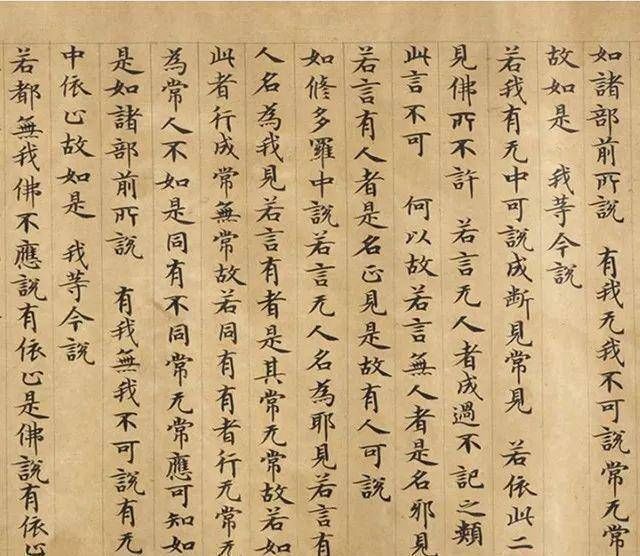 如諸部前所說　有我无我不可說常无常
故如是　我等今說
若我有无中可說成断見常見　若依此二
見佛所不許　若言无人者成過不記之類
此言不可　何以故若言無人者是名邪見
若言有人者是名正見是故有人可說
如修多羅中說若言无人名為耶見若言有
人名為我見若言有者是其常无常故若如
此者行成常無常故若同有有者行无常无
為常人不如是同有不同常无常應可知如
是如諸部前所說　有我無我不可說有无
中依止故如是　我等今說
若都無我佛不應說有依止是佛說有依止